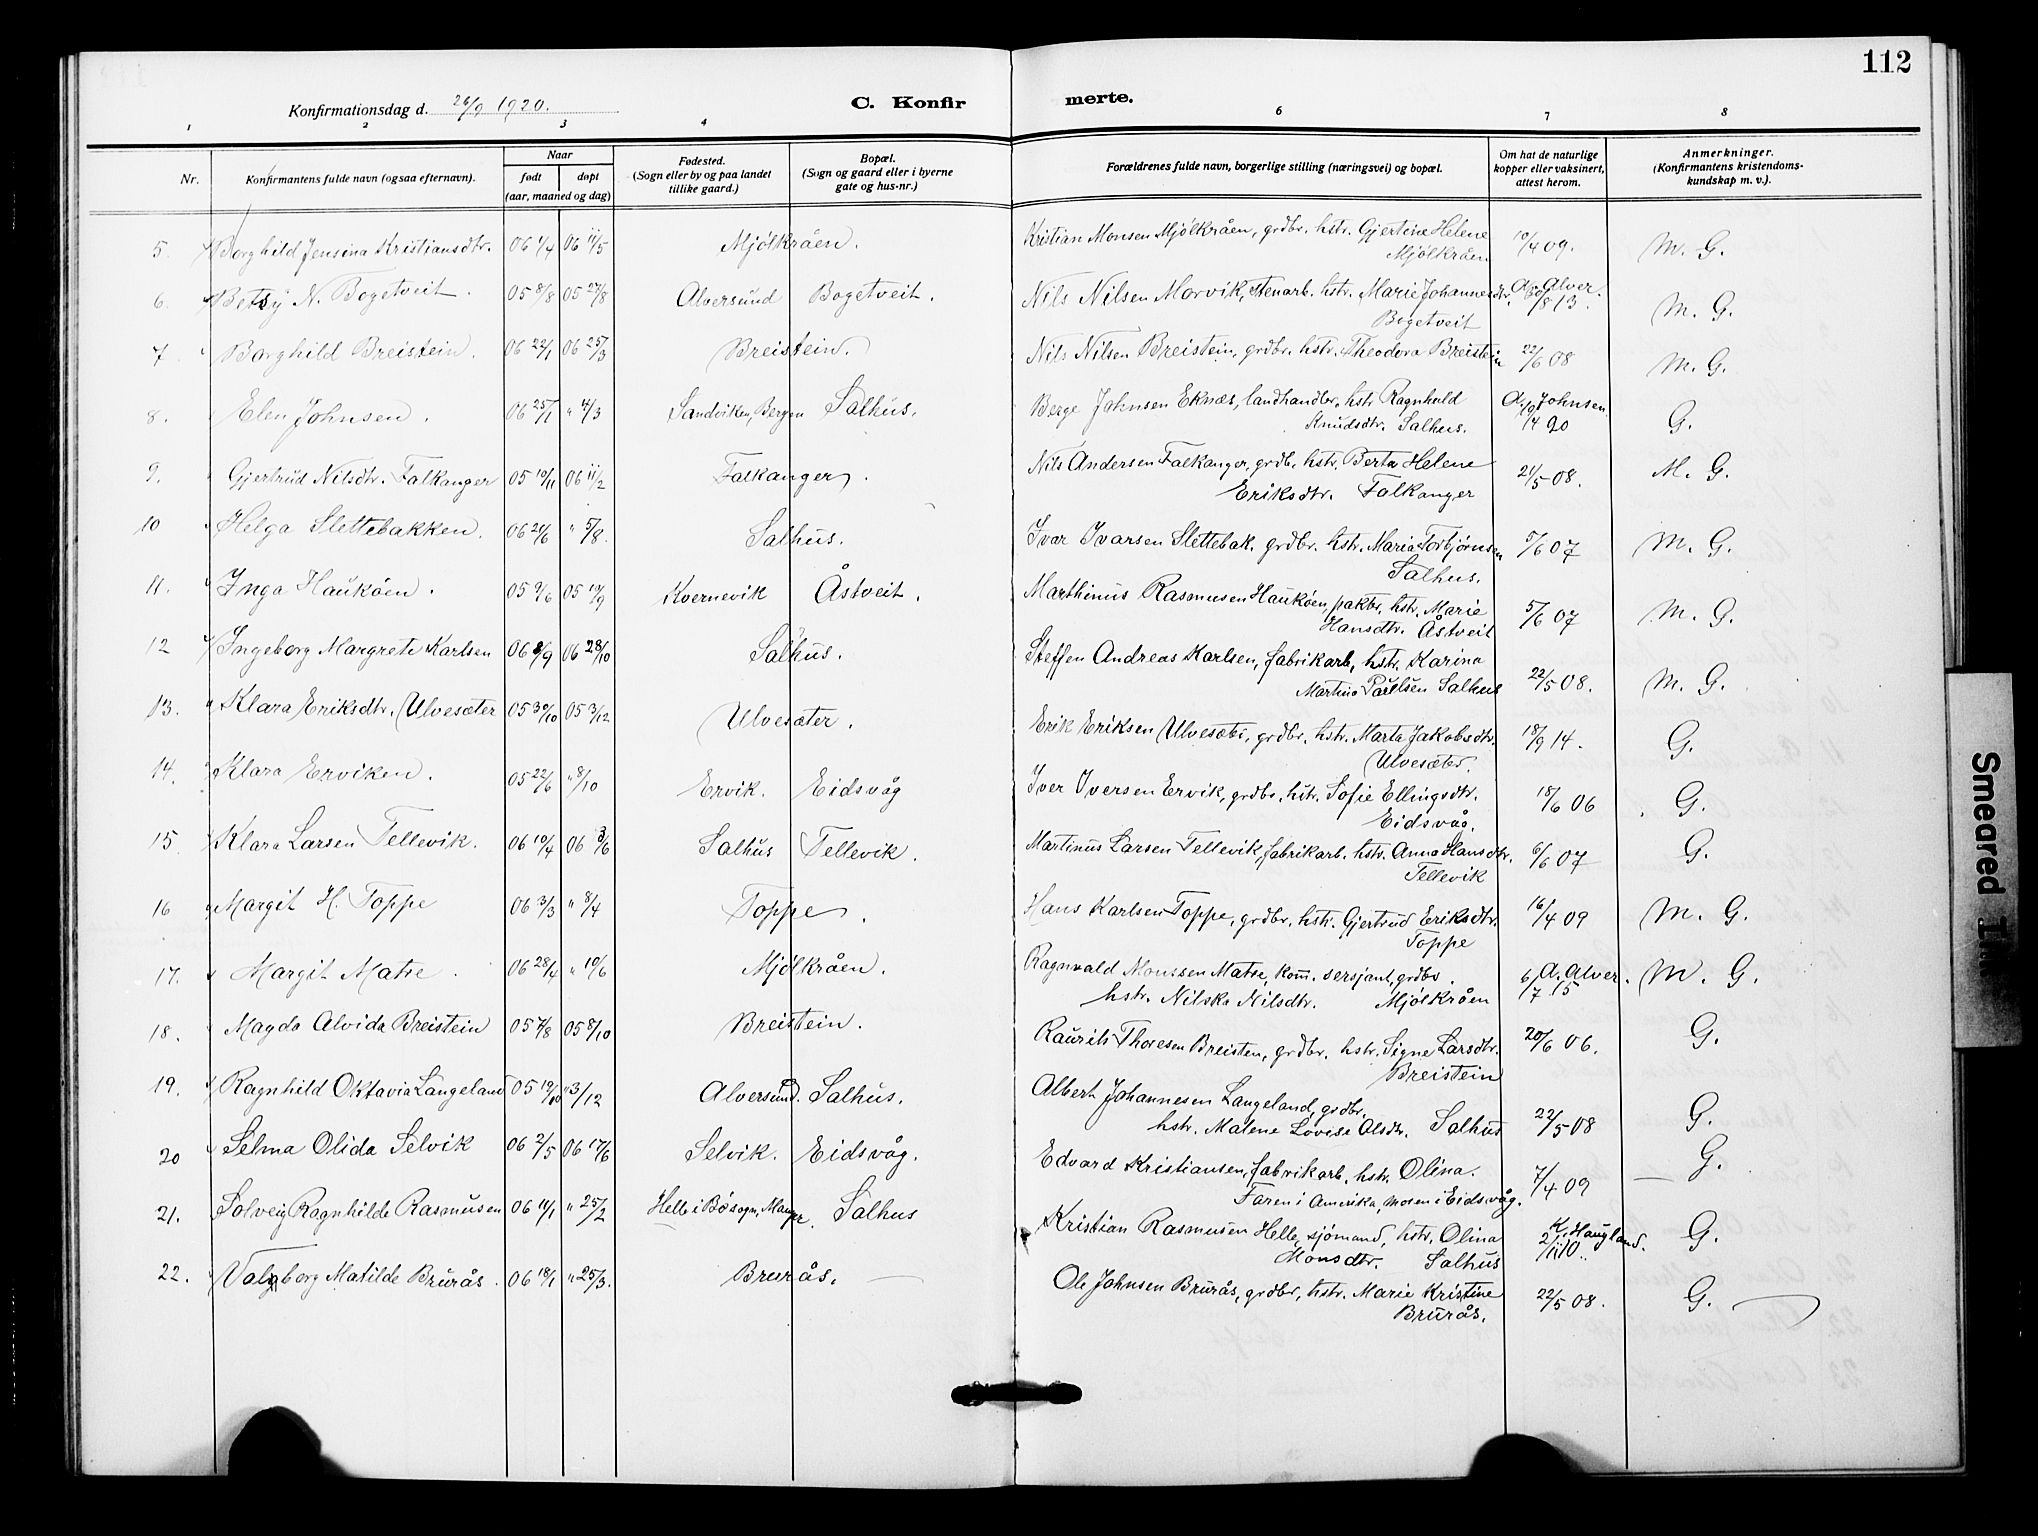 112
Konfirmationsdag d. 26/9 1920. C. Konfir merte.
1 2 3 4 6 7 8
Nr. Konfirmantens fulde navn (ogsaa efternavn). Naar født døpt (aar, maaned og dag) Fødested. (Sogn eller by og paa landet tillike gaard.) Bopæl. (Sogn og gaard eller i byerne gate og hus-nr.) Forældrenes fulde navn, borgerlige stilling (næringsvei) og bopæl. Om hat de naturlige kopper eller vaksinert, attest herom. Anmerkninger. (Konfirmantens kristendoms-kundskap m. v.).
5. Borghild Jensina Kristiansdtr. 06 1/4 06 11/5 Mjölkråen. Kristian Monsen Mjölkråen, grdbr. hstr. Gjertine Helene 10/4 09. M. G.
Mjölkråen
6. Betsy N. Bogetveit. 05 8/8 05 27/8 Alversund Bogetveit. Nils Nilsen Morvik, stenarb. hstr. Marie Johannesdtr. A. Alver. M. G.
Bogetveit
7. Borghild Breistein. 06 22/1 06 25/3 Breistein. Nils Nilsen Breistein, grdbr. hstr. Theodora Breistein 22/6 08 M. G.
8. Elen Johnsen. 06 25/1 " 4/3 Sandviken, Bergen Salhus. Berge Johnsen Eknæs, landhandler, hstr. Ragnhild A. Johnsen. G.
Knudsdtr. Salhus. 19/4 20
9. Gjertrud Nilsdtr. Falkanger 05 10/11 06 11/2 Falkanger. Nils Andersen Falkanger, grdb. hstr. Berta Helene 21/5 08. M. G.
Eriksdtr. Falkanger
10 Helga Slettebakken. 06 24/6 " 5/8. Salhus. Ivar Ivarsen Slettebak. grdbr. hstr. Maria Torbjørnsen 5/6 07 M. G.
Salhus.
11. Inga Hauköen. 05 9/6 05 10/9 Kvernevik Åstveit. Marthinus Rasmusen Hauköen, paktbr, hstr. Marie 5/6 07 M. G.
Hansdtr. Åstveit
12 Ingeborg Margrete Karlsen 06 8/9 06 28/10 Salhus. Steffen Andreas Karlsen, fabrikarb, hstr. Karina 22/5 08. M. G.
Martina Paulsen Salhus
13. Klara Eriksdtr. Ulvesæter 05 30/10 05 3/12 Ulvesæter. Erik Eriksen Ulvesæter, grdbr. hstr. Marta Jakobsdtr. 18/9 14. G.
Ulvesæter.
14. Klara Erviken. 05 22/6 " 8/10 Ervik. Eidsvåg Iver Iversen Ervik, grdbr. hstr. Sofie Ellingsdtr. 18/6 06 G.
Eidsvåg.
15. Klara Larsen Tellevik. 06 10/4 06 3/6 Salhus Tellevik. Martinus Larsen Tellevik, fabrikarb. hstr. Anna Hansdtr. 6/6 07 G.
Tellevik
16 Margit H. Toppe 06 3/3 " 8/4 Toppe. Hans Karlsen Toppe, grdbr, hstr. Gjertrud Eriksdtr. 16/4 09 M. G.
Toppe
17. Margit Matre. 06 28/4 " 10/6 Mjölkråen. Ragnvald Monssen Matre, kom. sersjant, grdbr. A. Alver. M. G.
hstr. Nilska Nilsdtr. Mjölkråen 6/7 15
18. Magda Alvida Breistein 05 7/8 05 8/10 Breistein. Laurits Thoresen Breisten, grdbr. hstr. Signe Larsdtr. 20/6 06. G.
Breistein
19. Ragnhild Oktavia Langeland 05 19/10 " 3/12 Alversund. Salhus. Albert Johannesen Langeland, grdbr, 22/5 08 G.
hstr. Malene Lovise Olsdtr. Salhus
20 Selma Olida Selvik 06 2/5 06 17/6 Selvik. Eidsvåg. Edvard Kristiansen, fabrikarb. hstr. Olina. 7/4 09 G.
Faren i Amerika, moren i Eidsvåg.
21. Solveig Ragnhilde Rasmusen 06 11/1 " 25/2 Helle i Bösogn, Manger. Salhus Kristian Rasmusen Helle, sjömand, hstr. Olina K. Haugland. G.
Monsdtr. Salhus
22. Valgborg Matilde Brurås. 06 18/1 " 25/3. Brurås. Ole Johnsen Brurås, grdbr, hstr. Marie Kristine 22/5 08. G.
Brurås.
Smeared Ink